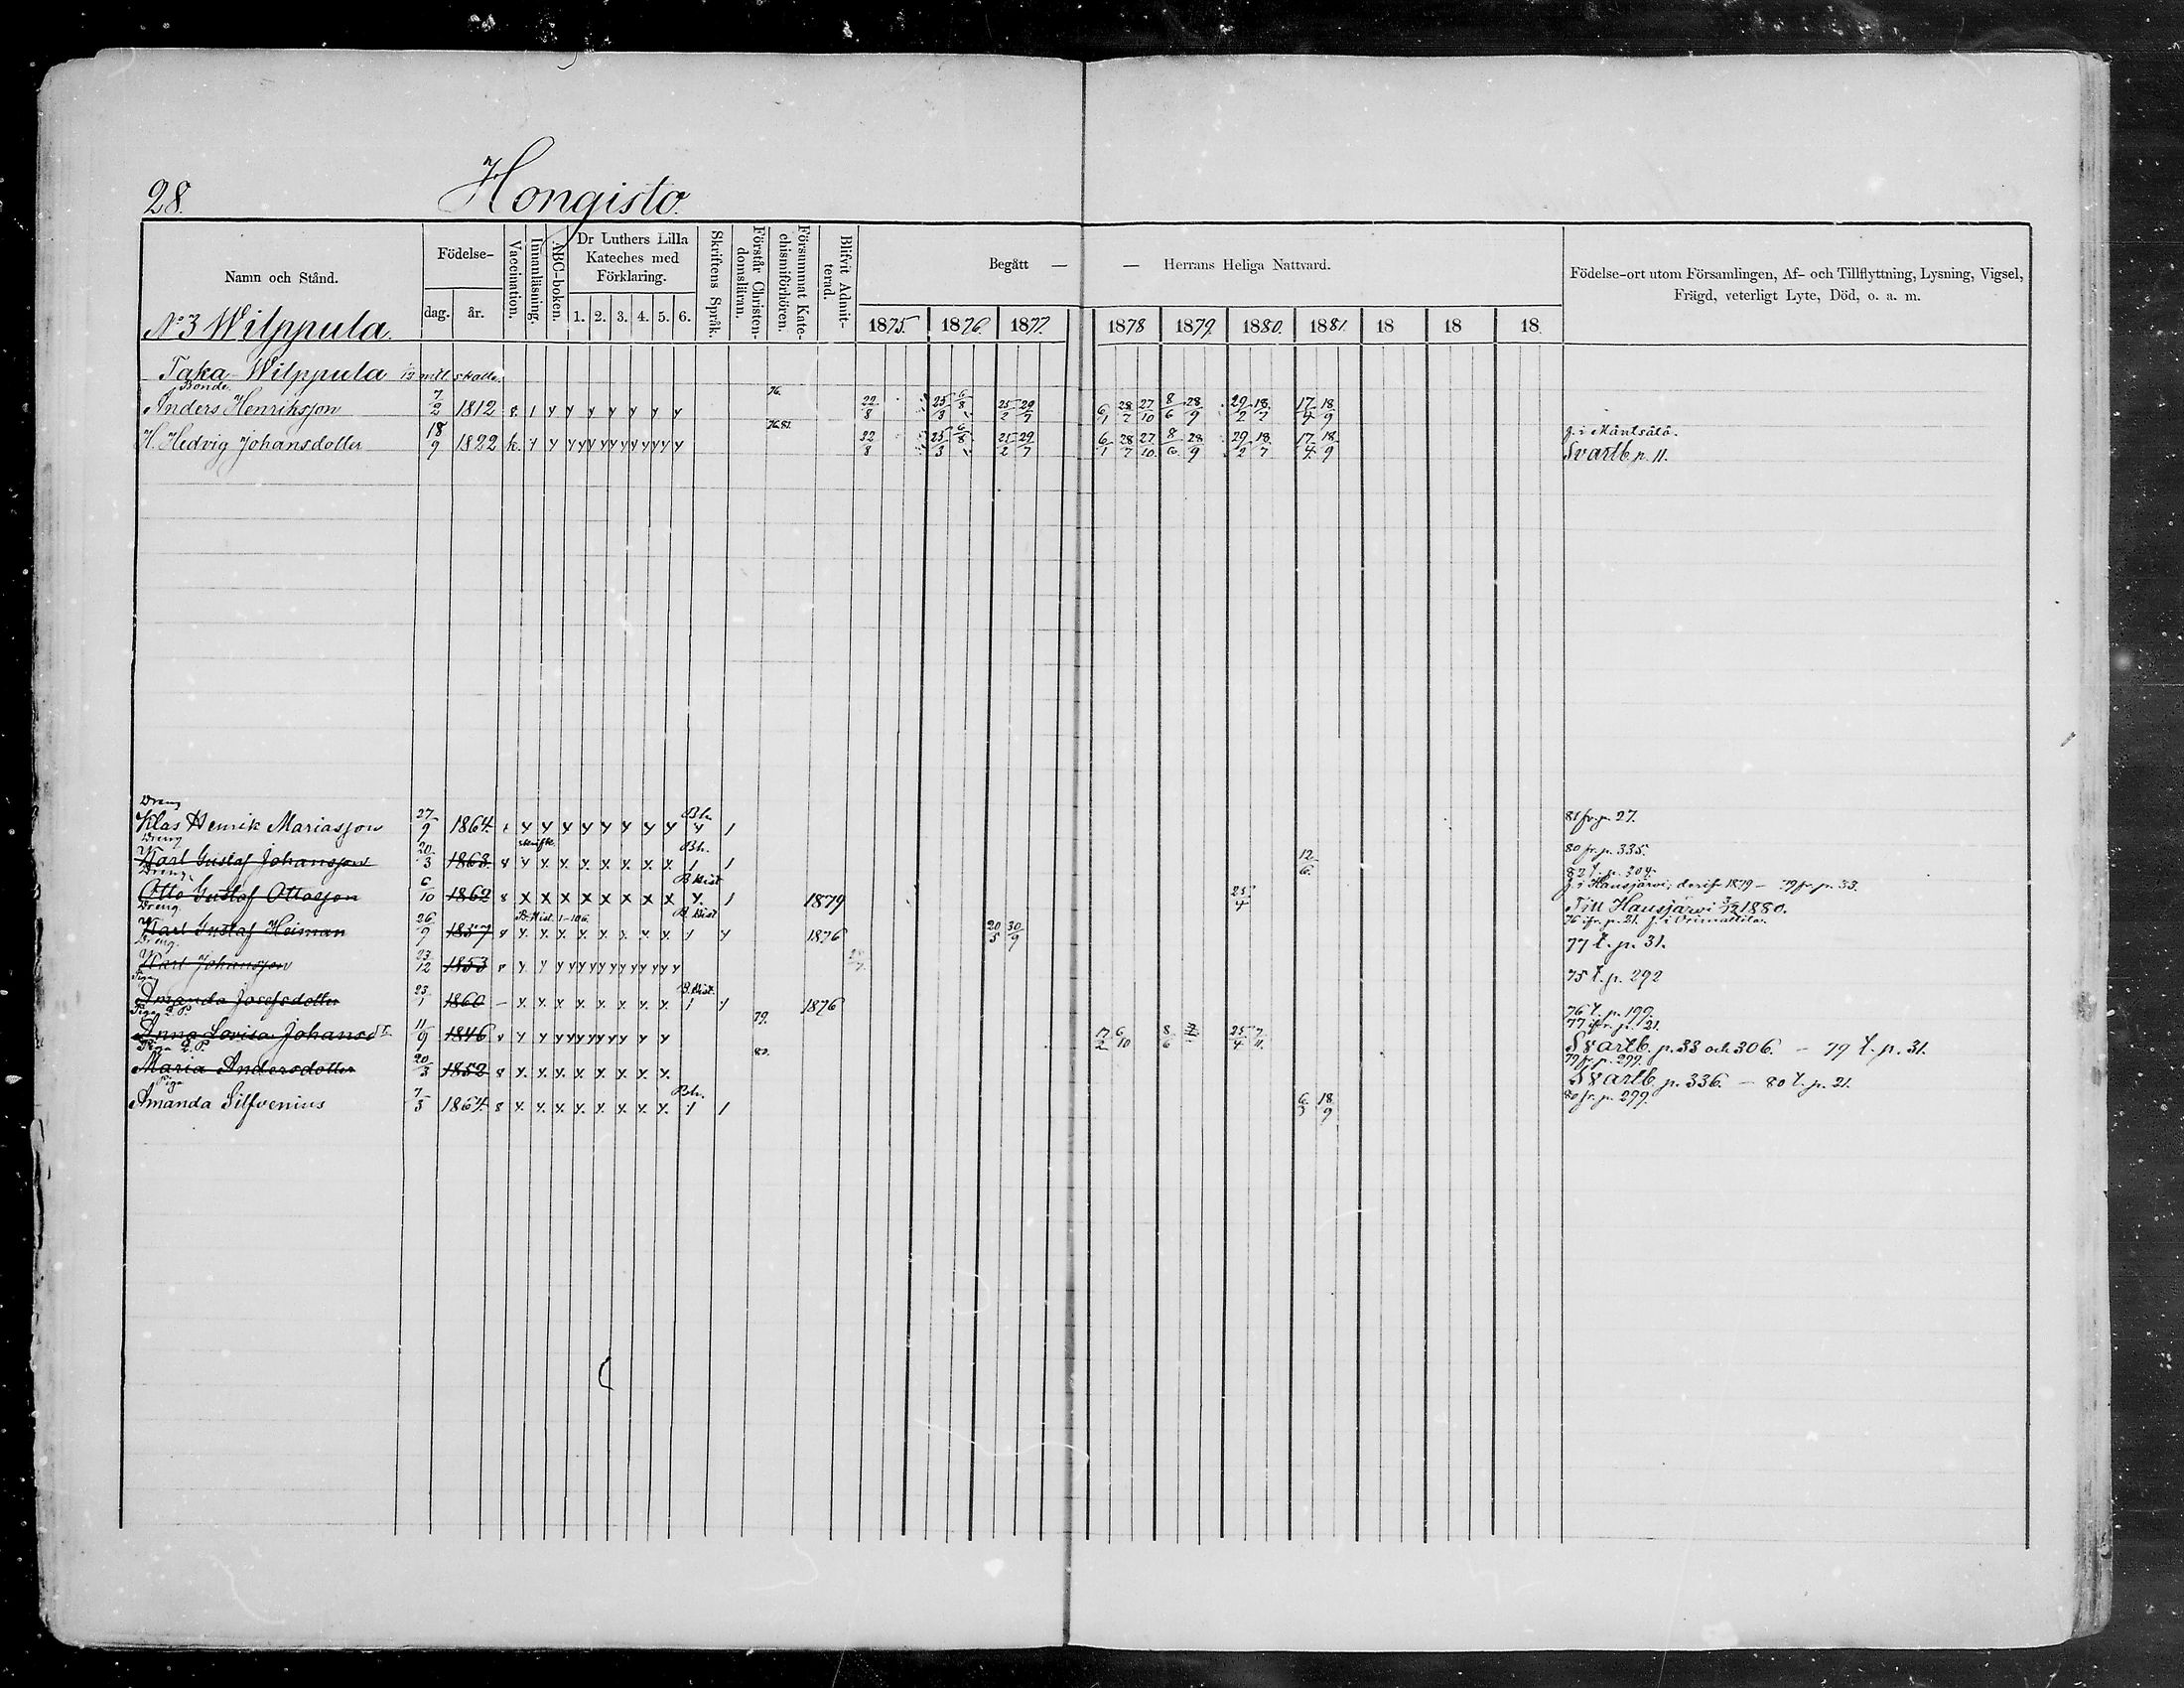 28. Hongisto.
Namn och Stånd.
Födelse-
dag. år.
Vaccination.
Innanläsning.
ABC-boken.
Dr Luthers Lilla
Kateches med
Förklaring.
1. 2. 3. 4. 5. 6.
Skriftens Språk.
Förstår Christen-
domsläran.
Försummat Kate-
chismiförhören.
Blifvit Admit-
terad.
Begått — — Herrans Heliga Nattvard.
1875. 1876. 1877. 1878 1879. 1880. 1881. 18 18 18
Födelse-ort utom Församlingen, Af- och Tillflyttning, Lysning, Vigsel,
Frägd, veterligt Lyte, Död, o. a. m.
No 3 Wilppula.
Taka-Wilppula
Bonde 76.
Anders Henriksson 7/2 1812 22/8 25/3 6/8 25/2 29/7 6/1 28/7 27/10 8/6 28/9 29/2 18/7 17/4 18/9
76.81. f. i Mäntsälä.
H. Hedvig Johansdotter 18/9 1822 22/8 25/3 6/8 25/2 29/7 6/1 28/7 27/10 8/6 28/9 29/2 18/7 17/4 18/9 Svartb. p. 11.
Dreng
Klas Henrik Mariasson 27/9 1864 Bh. 81 fr. p. 27.
Dreng
Karl Gustaf Johansson 20/3 1863 Bh. 12/6 80 fr. p. 335.
82 t. p. 304.
Dreng
Otto Gustaf Ottosson 6/10 1862 B. Hist 1879 25/4 f. i Hausjärvi, derifr 1879 – 79 fr. p. 33.
Till Hausjärvi 1880.
Dreng
Karl Gustaf Heiman 26/9 1857 B. Hist. 1-106. B. Hist 1876 20/5 30/9 76 ifr. p. 21. f. i Orimattila.
77 t. p. 31.
Dreng.
Karl Johansson 23/12 1853 75 t. p. 292
Piga
Amanda Josefsdotter 23/1 1860 B. Hist. 1876 76 t. p. 199.
Piga
Anna Lovisa Johansdr 11/9 1846 79. 17/2 6/10 8/6 25/4 7/11 77 ifr. p. 121.
Svartb. p. 33 och 306. – 79 t. p. 31.
Piga
Maria Andersdotter 20/3 1852 80. 79 fr. p. 299.
Svartb. p. 336. – 80 t. p. 21.
Piga
Amanda Silfvenius 7/5 1864 Bh. 6/3 18/9 80 fr. p. 299.